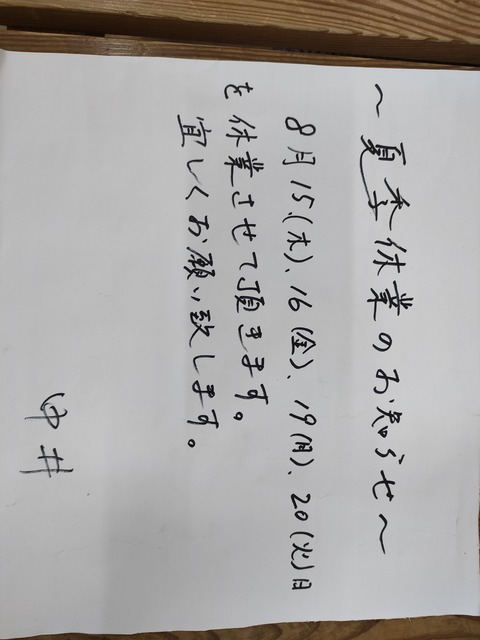 ～夏季休業のお知らせ～
8月15(木)、16(金)、19(月)、20(火)日
を休業させて頂きます。
宜しくお願い致します。
中井